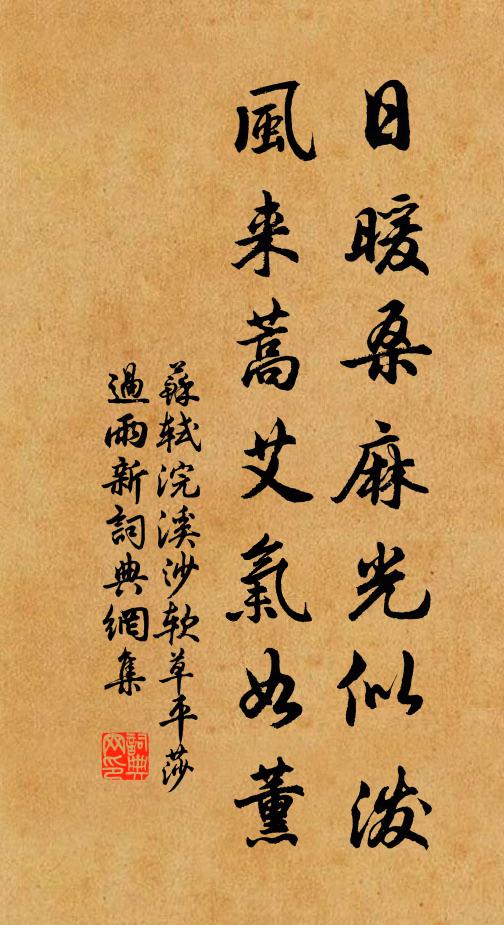 日暖桑麻光似泼
風来蒿艾氣如薰
蘇轼浣溪沙软草平莎
過雨新詞典網集
詞典网印